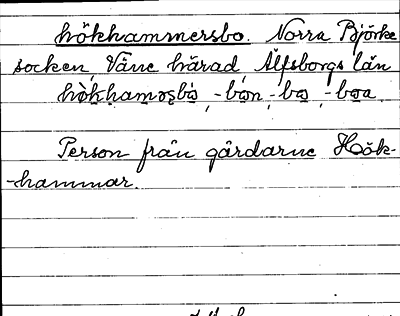 hökhammersbo. Norra Björke
socken, Väne härad, Älfsborgs län
hö̀k̦hamɔșbò̤, -bo̤n, -bo̤, -bo̤a
Person från gårdarne Hök-
-hammar.